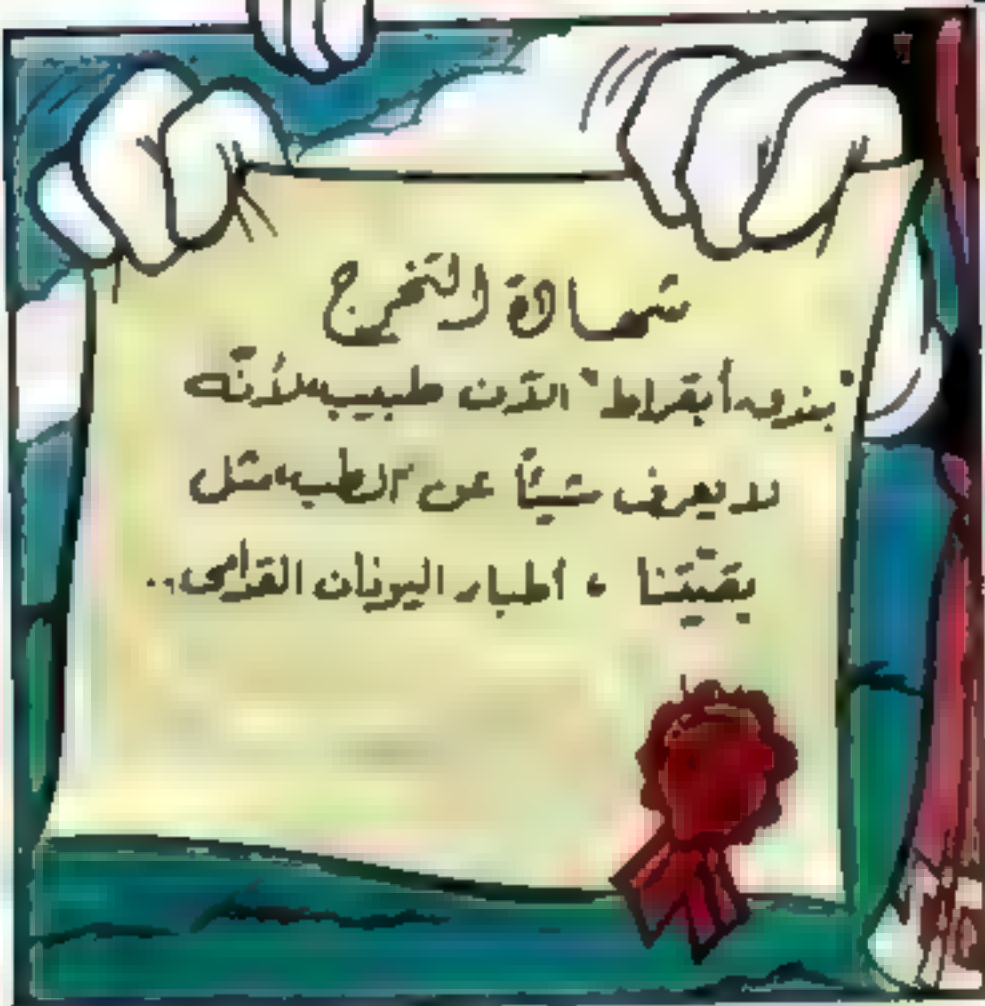 شهادة التخرج
"بندق أبقراط" الآن طبيب لأنّه
لا يعرف شيئاً عن الطب مثل
بقيّتنا ، أطباء اليونان القدامى..